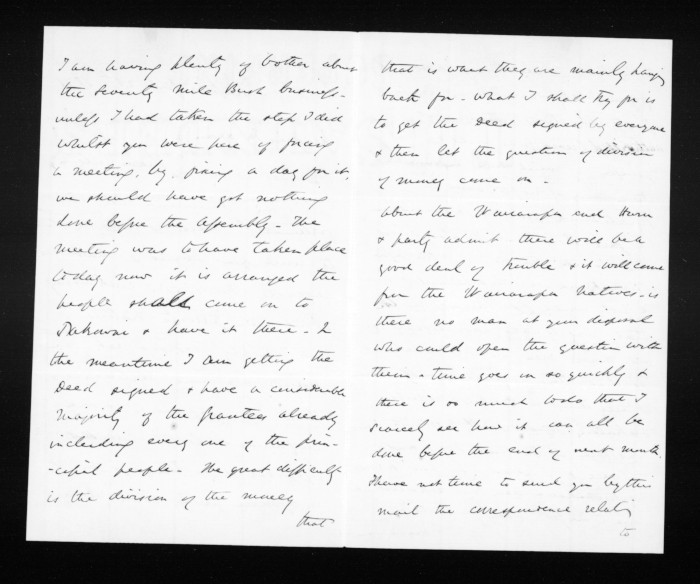 I am having plenty of bother about
the Seventy Mile Bush business -
unless I had taken the step I did
whilst you were here of forcing
a meeting, by, fixing a day for it,
we should have got nothing
done before the Assembly - The
meeting was to have taken place
today now it is arranged the
people shall come on to
& have it there - In
the meantime I am getting the
Deed signed & have a considerable
majority of the grantees already
including every one of the prin-
-cipal people - The great difficulty
is the division of the money
that
that is what they are mainly hanging
back for - what I shall try for is
to get the Deed signed by everyone
& then let the question of division
of money come on -
About the Wairarapa end
& party admit there will be a
good deal of trouble & it will come
from the Wairarapa Natives - is
there no man at your disposal
who could open the question with
them - time goes on so quickly &
there is so much to do that I
scarcely see how it can all be
done before the end of next month.
I have not time to send you by this
mail the correspondence relating
to